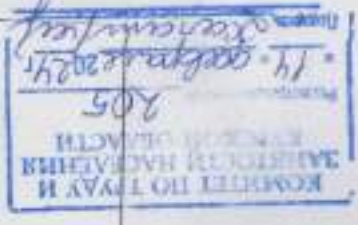 КОМИТЕТ ПО ТРУДУ И
ЗАНЯТОСТИ НАСЕЛЕНИЯ
КУРСКОЙ ОБЛАСТИ
205
"14" февраля 2024г
Подпись